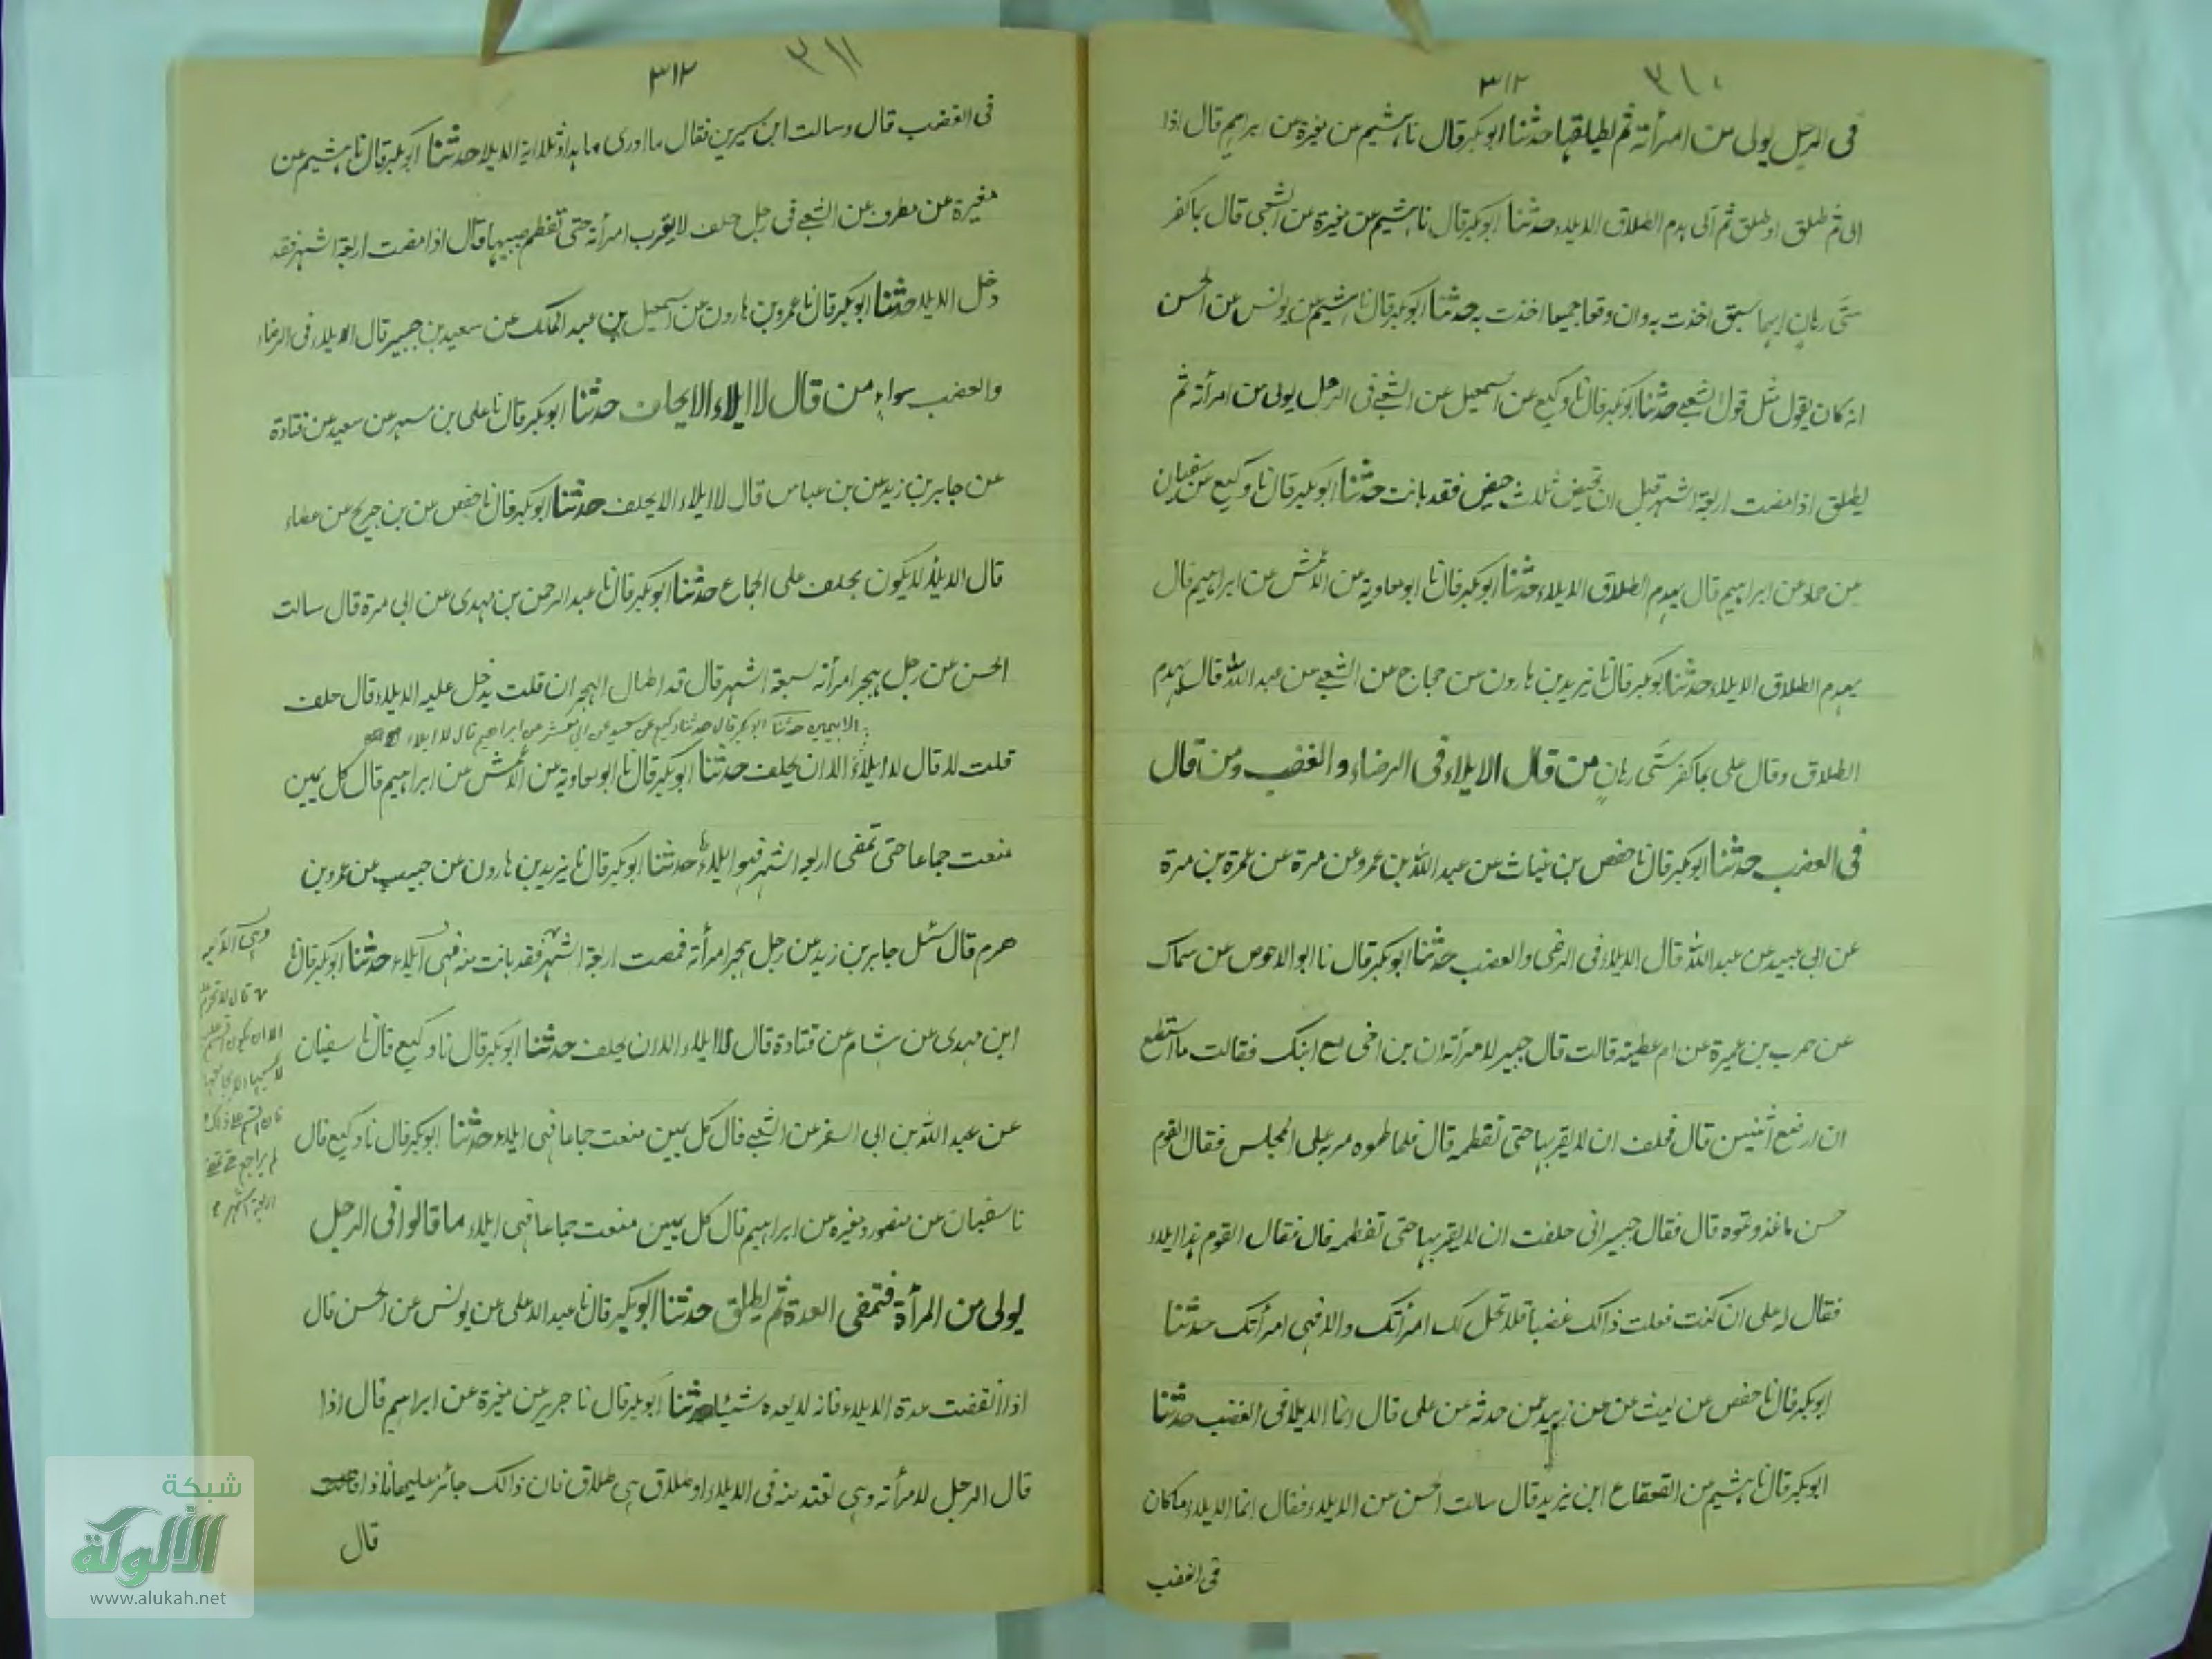 ٣١٠
٣١٢
فى الرجل يولى من امرأته ثم يطلقها حدثنا ابوبكر قال نا هشيم من مغيرة من ابراهيم قال اذا
الى ثم طلق او طلق ثم آلى هدم الطلاق الايلاء حدثنا ابوبكر قال نا هشيم عن مغيرة عن الشعبى قال بما كفر
ستى رهان ايهما سبق اخذت به وان وقعا جميعا اخذت به حدثنا ابوبكر قال نا هشيم عن يونس عن الحسن
انه كان يقول مثل قول الشعبى حدثنا ابوبكر قال نا وكيع عن اسمعيل عن الشعبى فى الرجل يولى من امرأته ثم
يطلق اذا مضت اربعة اشهر قبل ان تحيض ثلث حيض فقد بانت حدثنا ابوبكر قال نا وكيع عن سفيان
عن حماد عن ابراهيم قال يهدم الطلاق الايلاء حدثنا ابوبكر قال نا ابو معاوية عن الاعمش عن ابراهيم قال
يهدم الطلاق الايلاء حدثنا ابوبكر قال نا يزيد بن هارون عن حجاج عن الشعبى عن عبد الله قال يهدم
الطلاق وقال على بما كفر ستى رهان من قال الايلاء فى الرضاء والغضب ومن قال
فى الغضب حدثنا ابوبكر قال نا حفص بن غياث عن عبد الله بن عمرو عن مرة عن عمرة بن مرة
عن ابى عبيد عن عبد الله قال الايلاء فى الرضى والغضب حدثنا ابوبكر قال نا ابو الاحوص عن سماك
عن حرب بن عميرة عن ام عطية قالت قال جبير لامرأته ان بن اخى مع ابنك فقالت ما استطع
ان ارضع اثنين قال فحلف ان لا يقربها حتى تفطمه قال فلما فطموه مر به على المجلس فقال القوم
حسن ما غذوتموه قال فقال جبير انى حلفت ان لا يقربها حتى تفطمه قال فقال القوم هذا ايلاء
فقال له على ان كنت فعلت ذالك غضبا فلا تحل لك امرأتك والا فهى امرأتك حدثنا
ابوبكر قال نا حفص عن ليث عن عن زبيد عن حدثه عن على قال انما الايلا فى الغضب حدثنا
ابوبكر قال نا هشيم عن القعقاع ابن يزيد قال سالت الحسن عن الايلاء فقال انما الايلاء ما كان
فى الغضب
٣١١
٣١٣
فى الغضب قال وسالت ابن سيرين فقال ما ادرى ما هذا وتلا اية الايلا حدثنا ابوبكر قال نا هشيم عن
مغيرة عن مطرف عن الشعبى فى رجل حلف لا يقرب امرأته حتى تفطم صبيها قال اذا مضت اربعة اشهر فقد
دخل الايلا حدثنا ابوبكر قال نا عمرو بن هارون عن اسمعيل بن عبد الملك عن سعيد بن جبير قال الايلاء فى الرضاء
والغضب سواء من قال لا ايلاء الا بحلف حدثنا ابوبكر قال نا على بن مسهر عن سعيد عن قتادة
عن جابر بن زيد عن بن عباس قال لا ايلاء الا بحلف حدثنا ابوبكر قال نا حفص عن بن جريج عن عطاء
قال الايلاء لا يكون بحلف على الجماع حدثنا ابوبكر قال نا عبد الرحمن بن مهدى عن ابى مرة قال سالت
الحسن عن رجل يهجر امرأته سبعة اشهر قال قد اطال الهجر ان قلت يدخل عليه الايلاء قال حلف
الا بيمين حدثنا ابوبكر قال حدثنا وكيع عن سعيد عن ابى معشر عن ابراهيم قال لا ايلاء
قلت لا قال لا ايلاء الا ان يحلف حدثنا ابوبكر قال نا ابو معاوية عن الاعمش عن ابراهيم قال كل يمين
منعت جماعا حتى تمضى اربعة اشهر فهو ايلاء حدثنا ابوبكر قال نا يزيد بن هارون عن حبيب عن عمرو بن
هرم قال سئل جابر بن زيد عن رجل هجر امرأته فمضت اربعة اشهر فقد بانت منه فهى ايلاء حدثنا ابوبكر قال نا
ابن مهدى عن هشام عن قتادة قال لا ايلاء الا ان يحلف حدثنا ابوبكر قال نا وكيع قال نا سفيان
عن عبد الله بن ابى السفر عن الشعبى قال كل يمين منعت جماعا فهى ايلاء حدثنا ابوبكر قال نا وكيع قال
نا سفيان عن منصور ومغيرة عن ابراهيم قال كل يمين منعت جماعا فهى ايلاء ما قالوا فى الرجل
يولى من المرأة فتمضى العدة ثم يطلق حدثنا ابوبكر قال نا عبد الاعلى عن يونس عن الحسن قال
اذا انقضت عدة الايلاء فانه لا يعده شيئا حدثنا ابوبكر قال نا جرير عن مغيرة عن ابراهيم قال اذا
قال الرجل لامرأته وهى تعتد منه فى الايلاء او طلاق هى طلاق فان ذالك جائز عليها فاذا
قال
قال لا تحرم
الا ان يكون
اربعة اشهر
شبكة
الألوكة
www.alukah.net